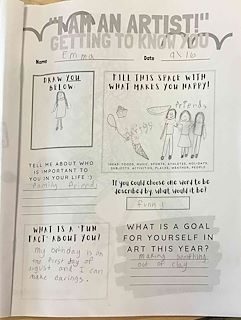 "I AM AN ARTIST!"
GETTING TO KNOW YOU
Name Emma Date 9/16
DRAW YOU BELOW
FILL THIS SPACE WITH WHAT MAKES YOU HAPPY!
friends
IDEAS: FOODS, MUSIC, SPORTS, ATHLETES, HOLIDAYS, SUBJECTS, ACTIVITIES, PLACES, WEATHER, PEOPLE
TELL ME ABOUT WHO IS IMPORTANT TO YOU IN YOUR LIFE :)
Family friends
If you could choose one word to be described by, what would it be?
funny
WHAT IS A "FUN FACT" ABOUT YOU?
my birthday is on
the first day of
august and I can
make
WHAT IS A GOAL FOR YOURSELF IN ART THIS YEAR?
making something
out of clay